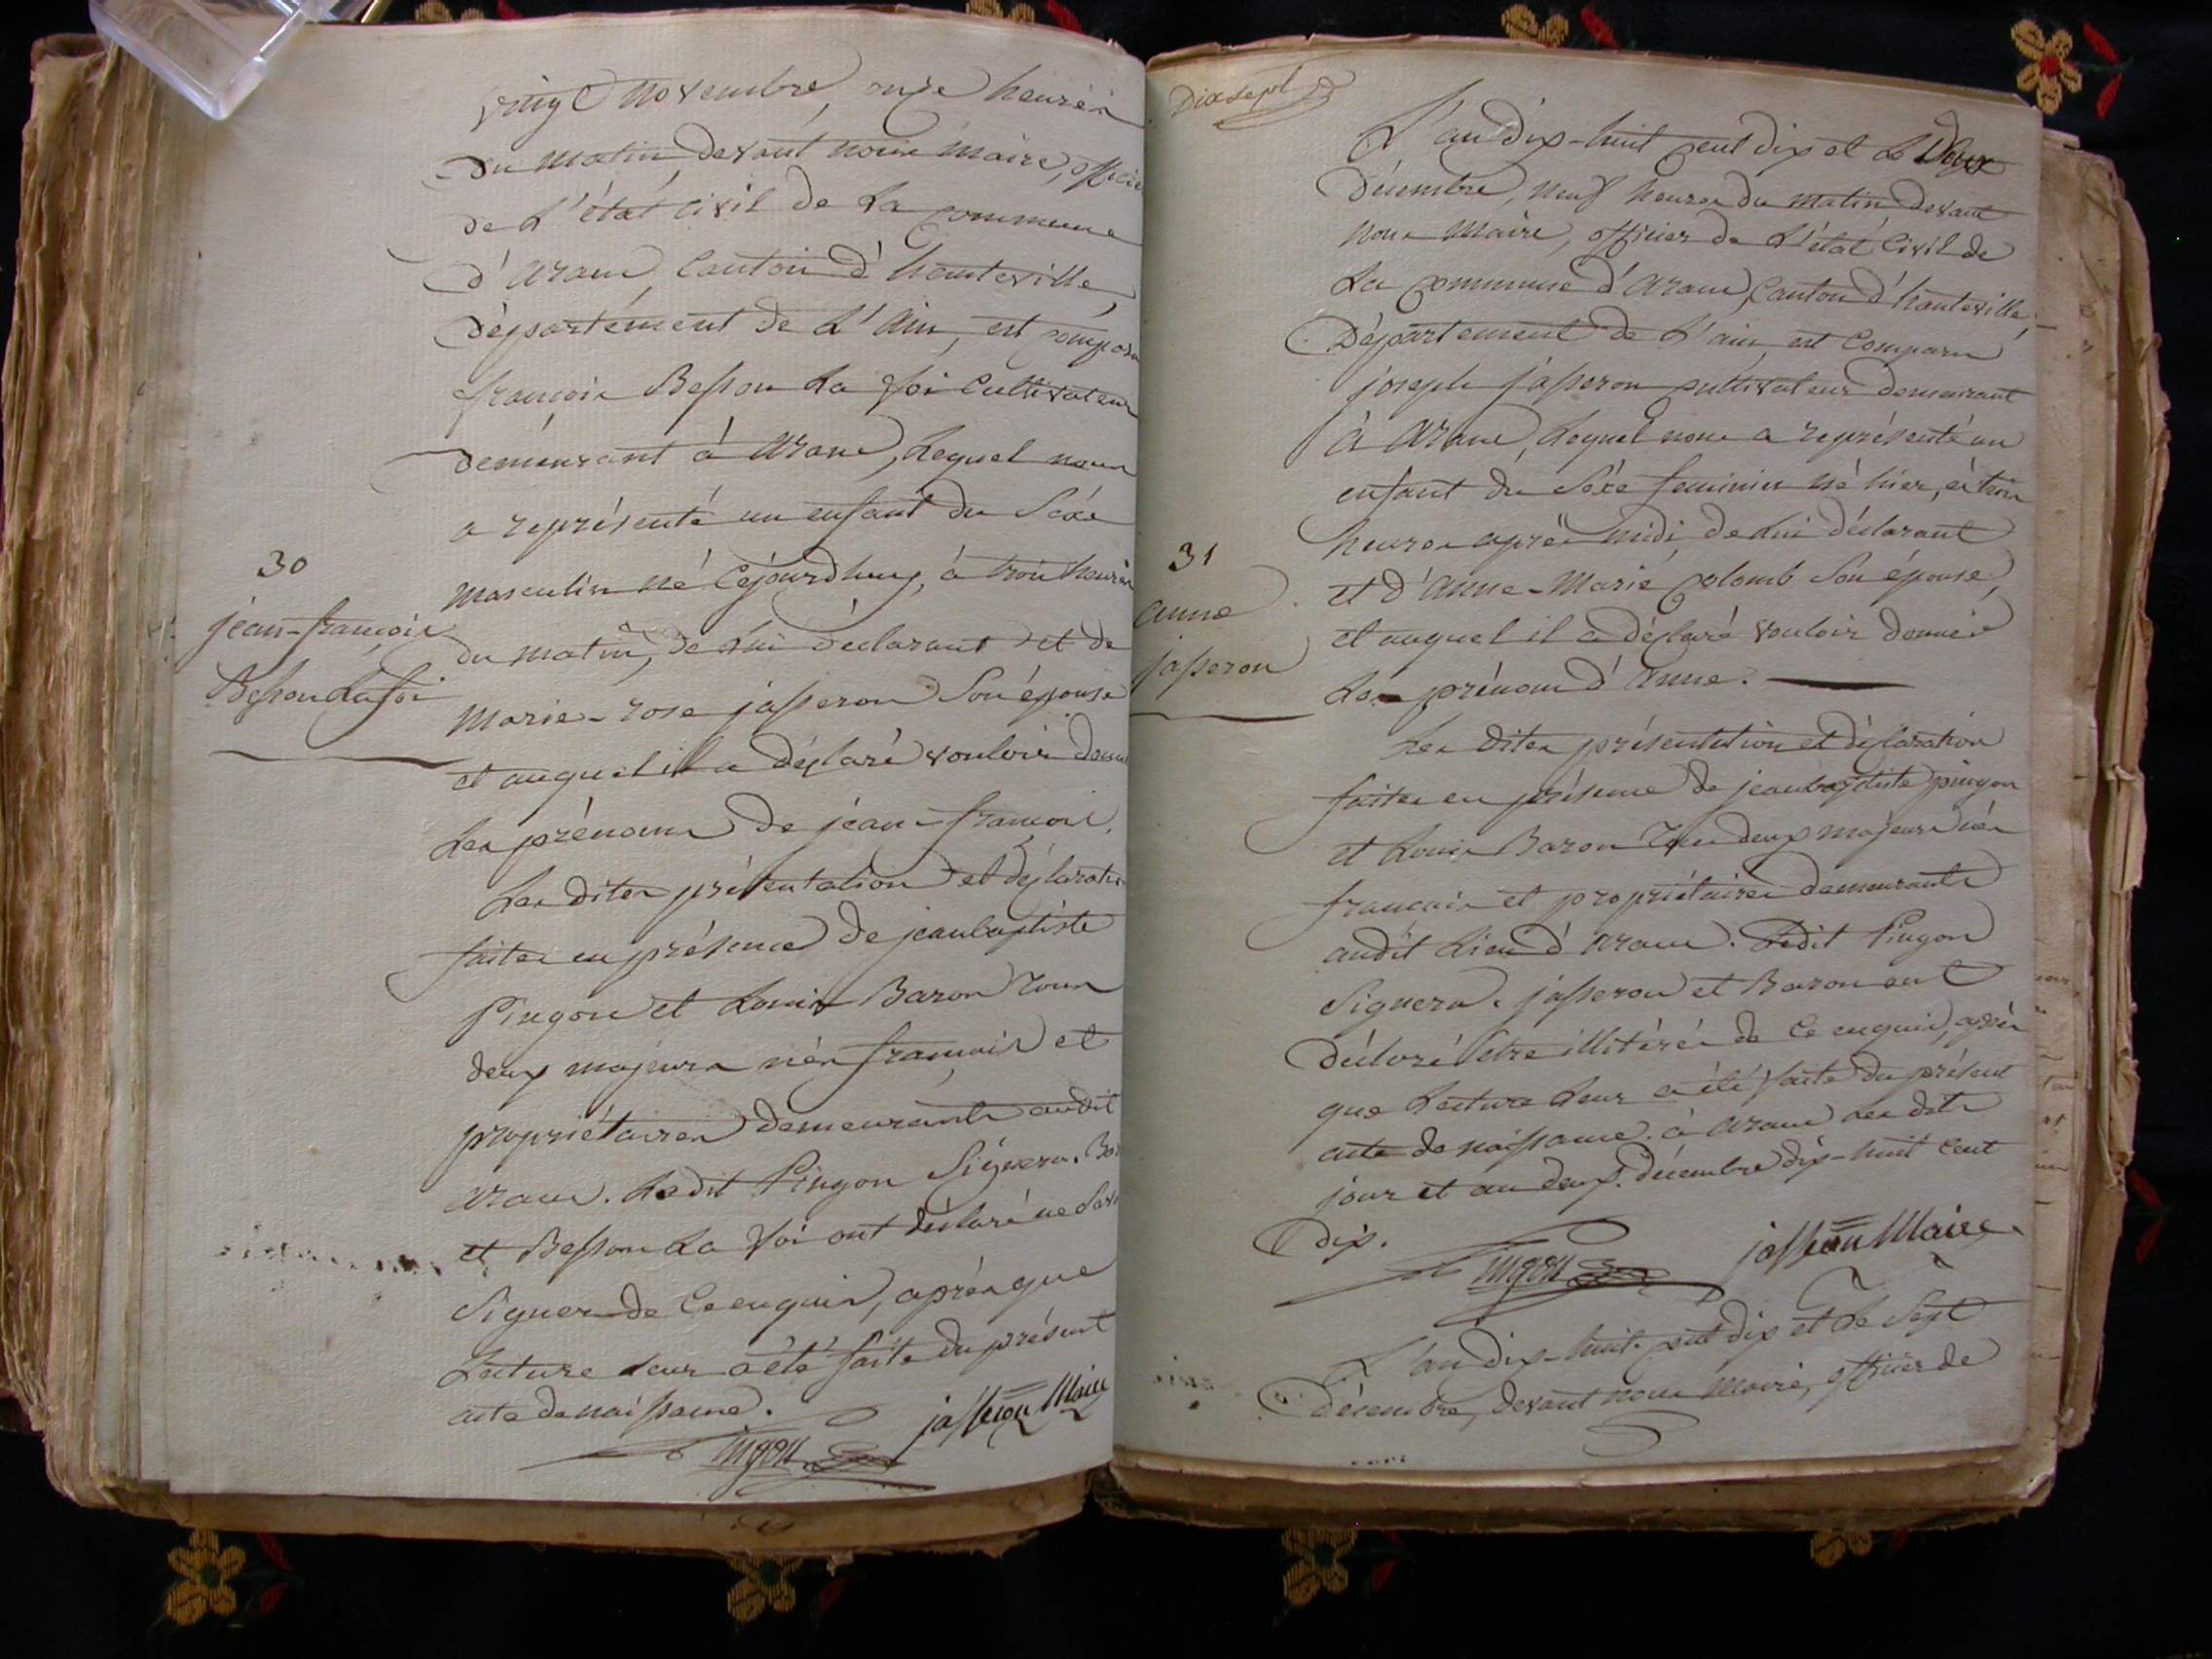 vingt novembre, onze heures
du matin, devant nous maire, officie
de L'état civil de La commune
d'arane, canton d'hauteville,
département de L'Ain, est comparu
françois Besson La foi cultivateur
demeurant à arane, Lequel nous
a représenté un enfant du Séxe
masculin né Cejourdhuy, à trois heures
du matin, de Lui déclarant et de
marie-rose jasseron Son épouse
et auquel il a déclaré vouloir donne
Les prénoms de jean-françois.
Les dites présentation et déclaration
faites en présence de jeanbaptiste
Pingon et Louis Baron tous
deux majeurs nés français et
propriétaires demeurants audit
arane. Ledit Pingon Signera. Bar
et Besson La foi ont déclaré ne Savoi
Signer de Ceenquis, après que
Lecture Leur a été faite du présent
acte de naissance.
Pingon jasseron Maire
30
jean-françois
Besson La foi
Dix sept
L'an dix-huit cent dix et Le Deux
décembre, neuf heures du matin devant
nous maire, officier de L'état Civil de
La commune d'arane, Canton d'hauteville,
Département de L'ain est Comparu
joseph jasseron cultivateur demeurant
à arane, Lequel nous a représenté un
enfant du Séxe feminin né hier, à trois
heures après midi, de Lui déclarant
et d'anne-Marie colomb Son épouse,
et auquel il a déclaré vouloir donner
Le prénom d'anne.
Les dites présentation et déclaration
faites en présence de jeanbaptiste pingon
et Louis Baron Tous deux majeurs nés
français et propriétaires demeurants
audit Lieu d'arane. Ledit Pingon
Signera. jasseron et Baron ont
déclaré être illitérés de Ce enquis, après
que Lecture Leur a été faite du présent
acte de naissance. à arane Les dits
jour et an deux décembre dix-huit Cent
dix.
Pingon jasseron Maire
31
anne
jasseron
L'an dix-huit-cent dix et Le Sept
décembre, devant nous maire, officier de